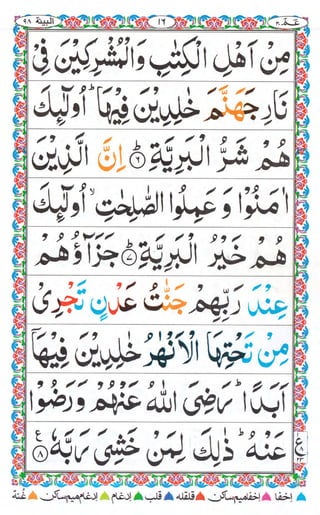 البينة ٩٨
١٦
عـم ٣٠
مِنْ اَهْلِ الْكِتٰبِ وَالْمُشْرِكِيْنَ فِىْ
نَارِ جَهَنَّمَ خٰلِدِيْنَ فِيْهَا ؕ اُولٰٓئِكَ
هُمْ شَرُّ الْبَرِيَّةِ ؕ ﴿۶﴾ اِنَّ الَّذِيْنَ
اٰمَنُوْا وَ عَمِلُوا الصّٰلِحٰتِ ۙ اُولٰٓئِكَ
هُمْ خَيْرُ الْبَرِيَّةِ ؕ ﴿۷﴾ جَزَآؤُهُمْ
عِنْدَ رَبِّهِمْ جَنّٰتُ عَدْنٍ تَجْرِىْ
مِنْ تَحْتِهَا الْاَنْهٰرُ خٰلِدِيْنَ فِيْهَاۤ
اَبَدًا ؕ رَضِىَ اللّٰهُ عَنْهُمْ وَرَضُوْا
عَنْهُ ؕ ذٰلِكَ لِمَنْ خَشِىَ رَبَّهٗ ﴿۸﴾ ع
اخفا اخفامیم ساکن قلقلہ قلب ادغام ادغام میم ساکن غنة